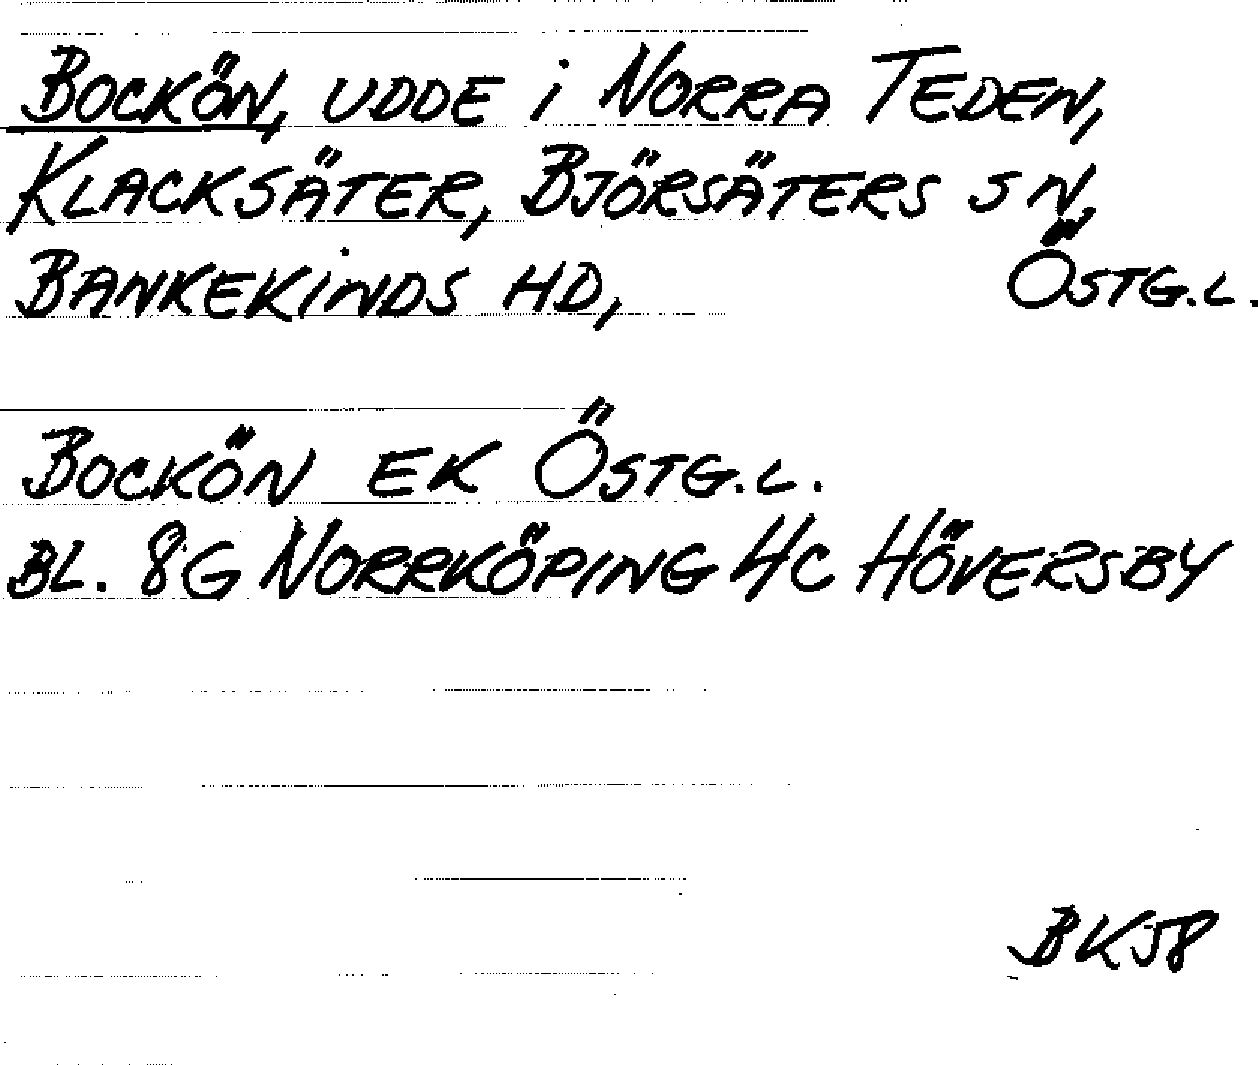 BOCKÖN, UDDE i NORRA TEDEN,
KLACKSÄTER, BJÖRSÄTERS SN,
BANKEKINDS HD, ÖSTG.L.
BOCKÖN EK ÖSTG.L.
BL. 8G NORRKÖPING 4C HÖVERSBY
BK58